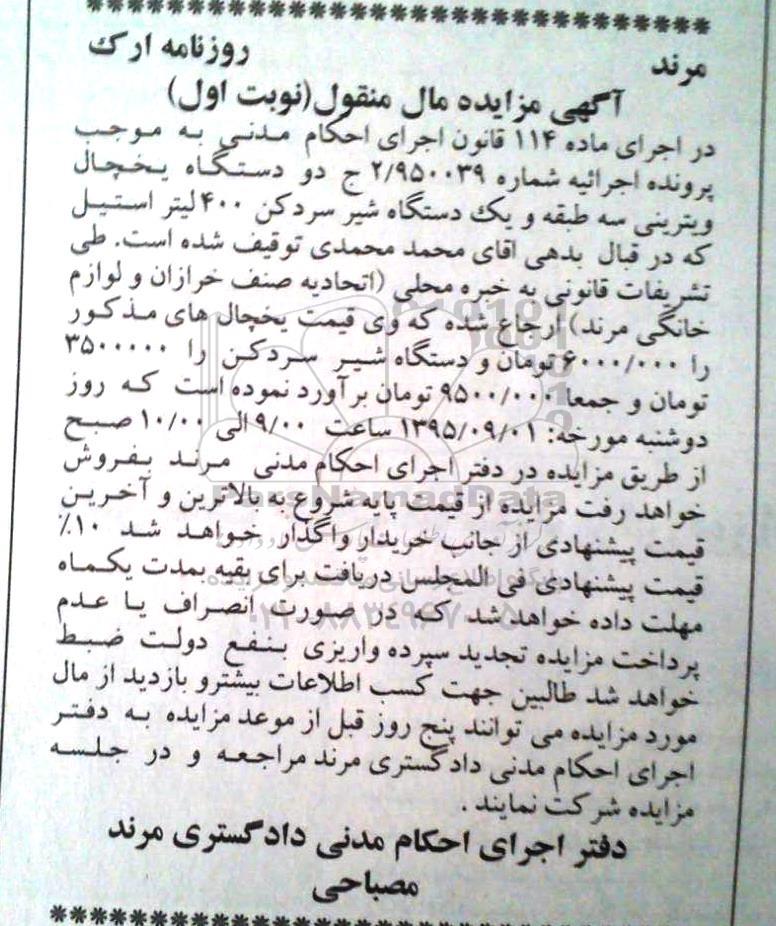 ********************************
مرند روزنامه ارک
آگهی مزایده مال منقول(نوبت اول)
در اجرای ماده ۱۱۴ قانون اجرای احکام مدنی به موجب
پرونده اجرائیه شماره ۲/۹۵۰۰۳۹ ج دو دستگاه یخچال
ویترینی سه طبقه و یک دستگاه شیر سردکن ۴۰۰ لیتر استیل
که در قبال بدهی اقای محمد محمدی توقیف شده است. طی
تشریفات قانونی به خبره محلی (اتحادیه صنف خرازان و لوازم
خانگی مرند) ارجاع شده که وی قیمت یخچال های مذکور
را ۶۰۰۰/۰۰۰ تومان و دستگاه شیر سردکن را ۳۵۰۰۰۰۰
تومان و جمعا ۹۵۰۰/۰۰۰ تومان برآورد نموده است که روز
دوشنبه مورخه: ۱۳۹۵/۰۹/۰۱ ساعت ۹/۰۰ الی ۱۰/۰۰ صبح
از طریق مزایده در دفتر اجرای احکام مدنی مرند بفروش
خواهد رفت مزایده از قیمت پایه شروع به بالاترین و آخرین
قیمت پیشنهادی از جانب خریدار واگذار خواهد شد ۱۰٪
قیمت پیشنهادی فی المجلس دریافت برای بقیه بمدت یکماه
مهلت داده خواهد شد که در صورت انصراف یا عدم
پرداخت مزایده تجدید سپرده واریزی بنفع دولت ضبط
خواهد شد طالبین جهت کسب اطلاعات بیشترو بازدید از مال
مورد مزایده می توانند پنج روز قبل از موعد مزایده به دفتر
اجرای احکام مدنی دادگستری مرند مراجعه و در جلسه
مزایده شرکت نمایند .
دفتر اجرای احکام مدنی دادگستری مرند
مصباحی
********************************
ParsNamadData